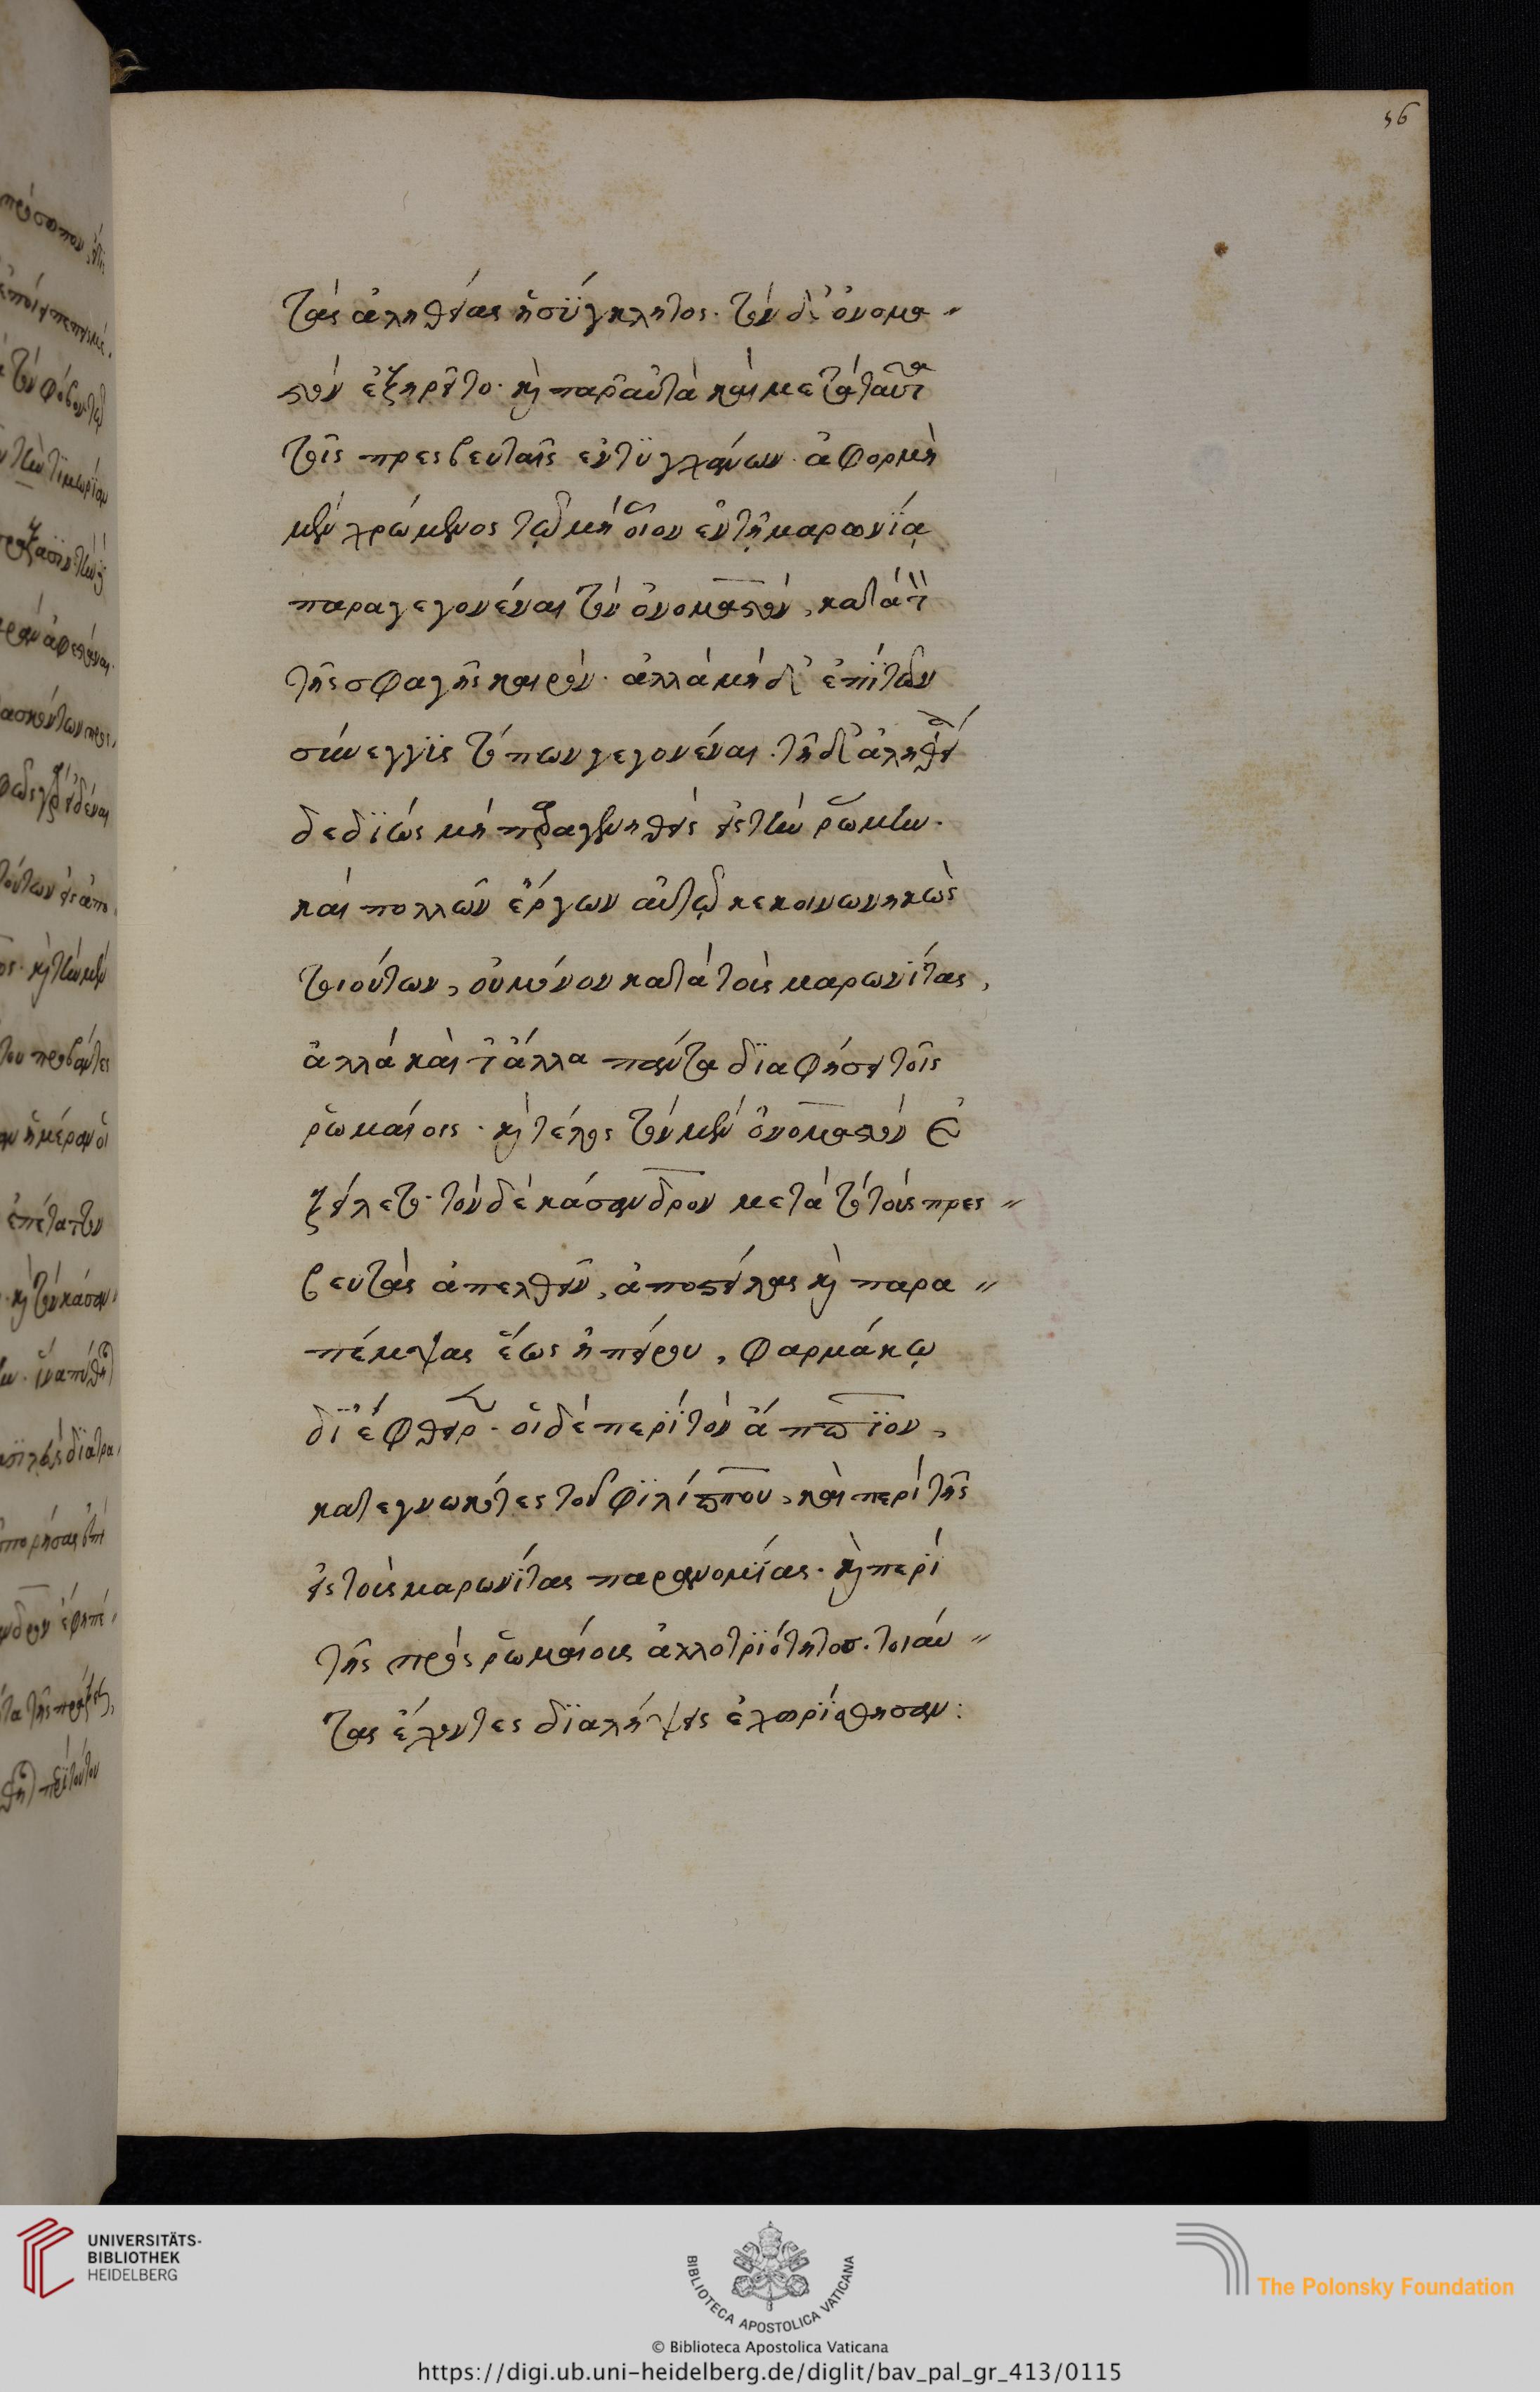 56
τὰς ἀληθείας ἡ σύγκλητος. τὸν δ' ὀνομα-
στὸν ἐξηρεῖτο· καὶ παρ' αὐτὰ καὶ μετὰ ταῦτα
τοῖς πρεσβευταῖς ἐντϋγχάνων. ἀφορμῇ
μὲν χρώμενος τῷ μὴ οἷον ἐν τῇ μαρωνίᾳ
παραγεγονέναι τὸν ὀνομαστὸν, κατὰ τὸν
τῆς σφαγῆς καιρὸν. ἀλλὰ μὴ δ' ἐπὶ τῶν
σύνεγγϋς τόπων γεγονέναι. τῇ δ' ἀληθείᾳ
δεδϊὼς μὴ παραγενηθεὶς εἰς τὴν ῥώμην.
καὶ πολλῶν ἔργων αὐτῷ κεκοινωνηκὼς
τοιούτων, οὐ μόνον κατὰ τοὺς μαρωνίτας,
ἀλλὰ καὶ τἆλλα πάντα διαφήσει τοῖς
ῥωμαίοις. καὶ τέλος τὸν μὲν ὀνομαστὸν ἐ
ξείλετο. τὸν δὲ κάσανδρον μετὰ τὸ τοὺς πρεσ-
βευτὰς ἀπελθεῖν, ἀποστείλας καὶ παρα-
πέμψας ἕως ἠπείρου, φαρμάκῳ
διέφθειρε. οἱ δὲ περὶ τὸν ἄππϊον,
κατεγνωκότες τοῦ φϊλίππου, καὶ περὶ τῆς
εἰς τοὺς μαρωνίτας παρανομίας. καὶ περὶ
τῆς πρὸς ῥωμαίους ἀλλοτρϊότητοσ. τοιαύ-
τας ἔχοντες διαλήψεις ἐχωρίσθησαν:
UNIVERSITÄTS-
BIBLIOTHEK
HEIDELBERG
BIBLIOTECA APOSTOLICA VATICANA
The Polonsky Foundation
© Biblioteca Apostolica Vaticana
https://digi.ub.uni-heidelberg.de/diglit/bav_pal_gr_413/0115